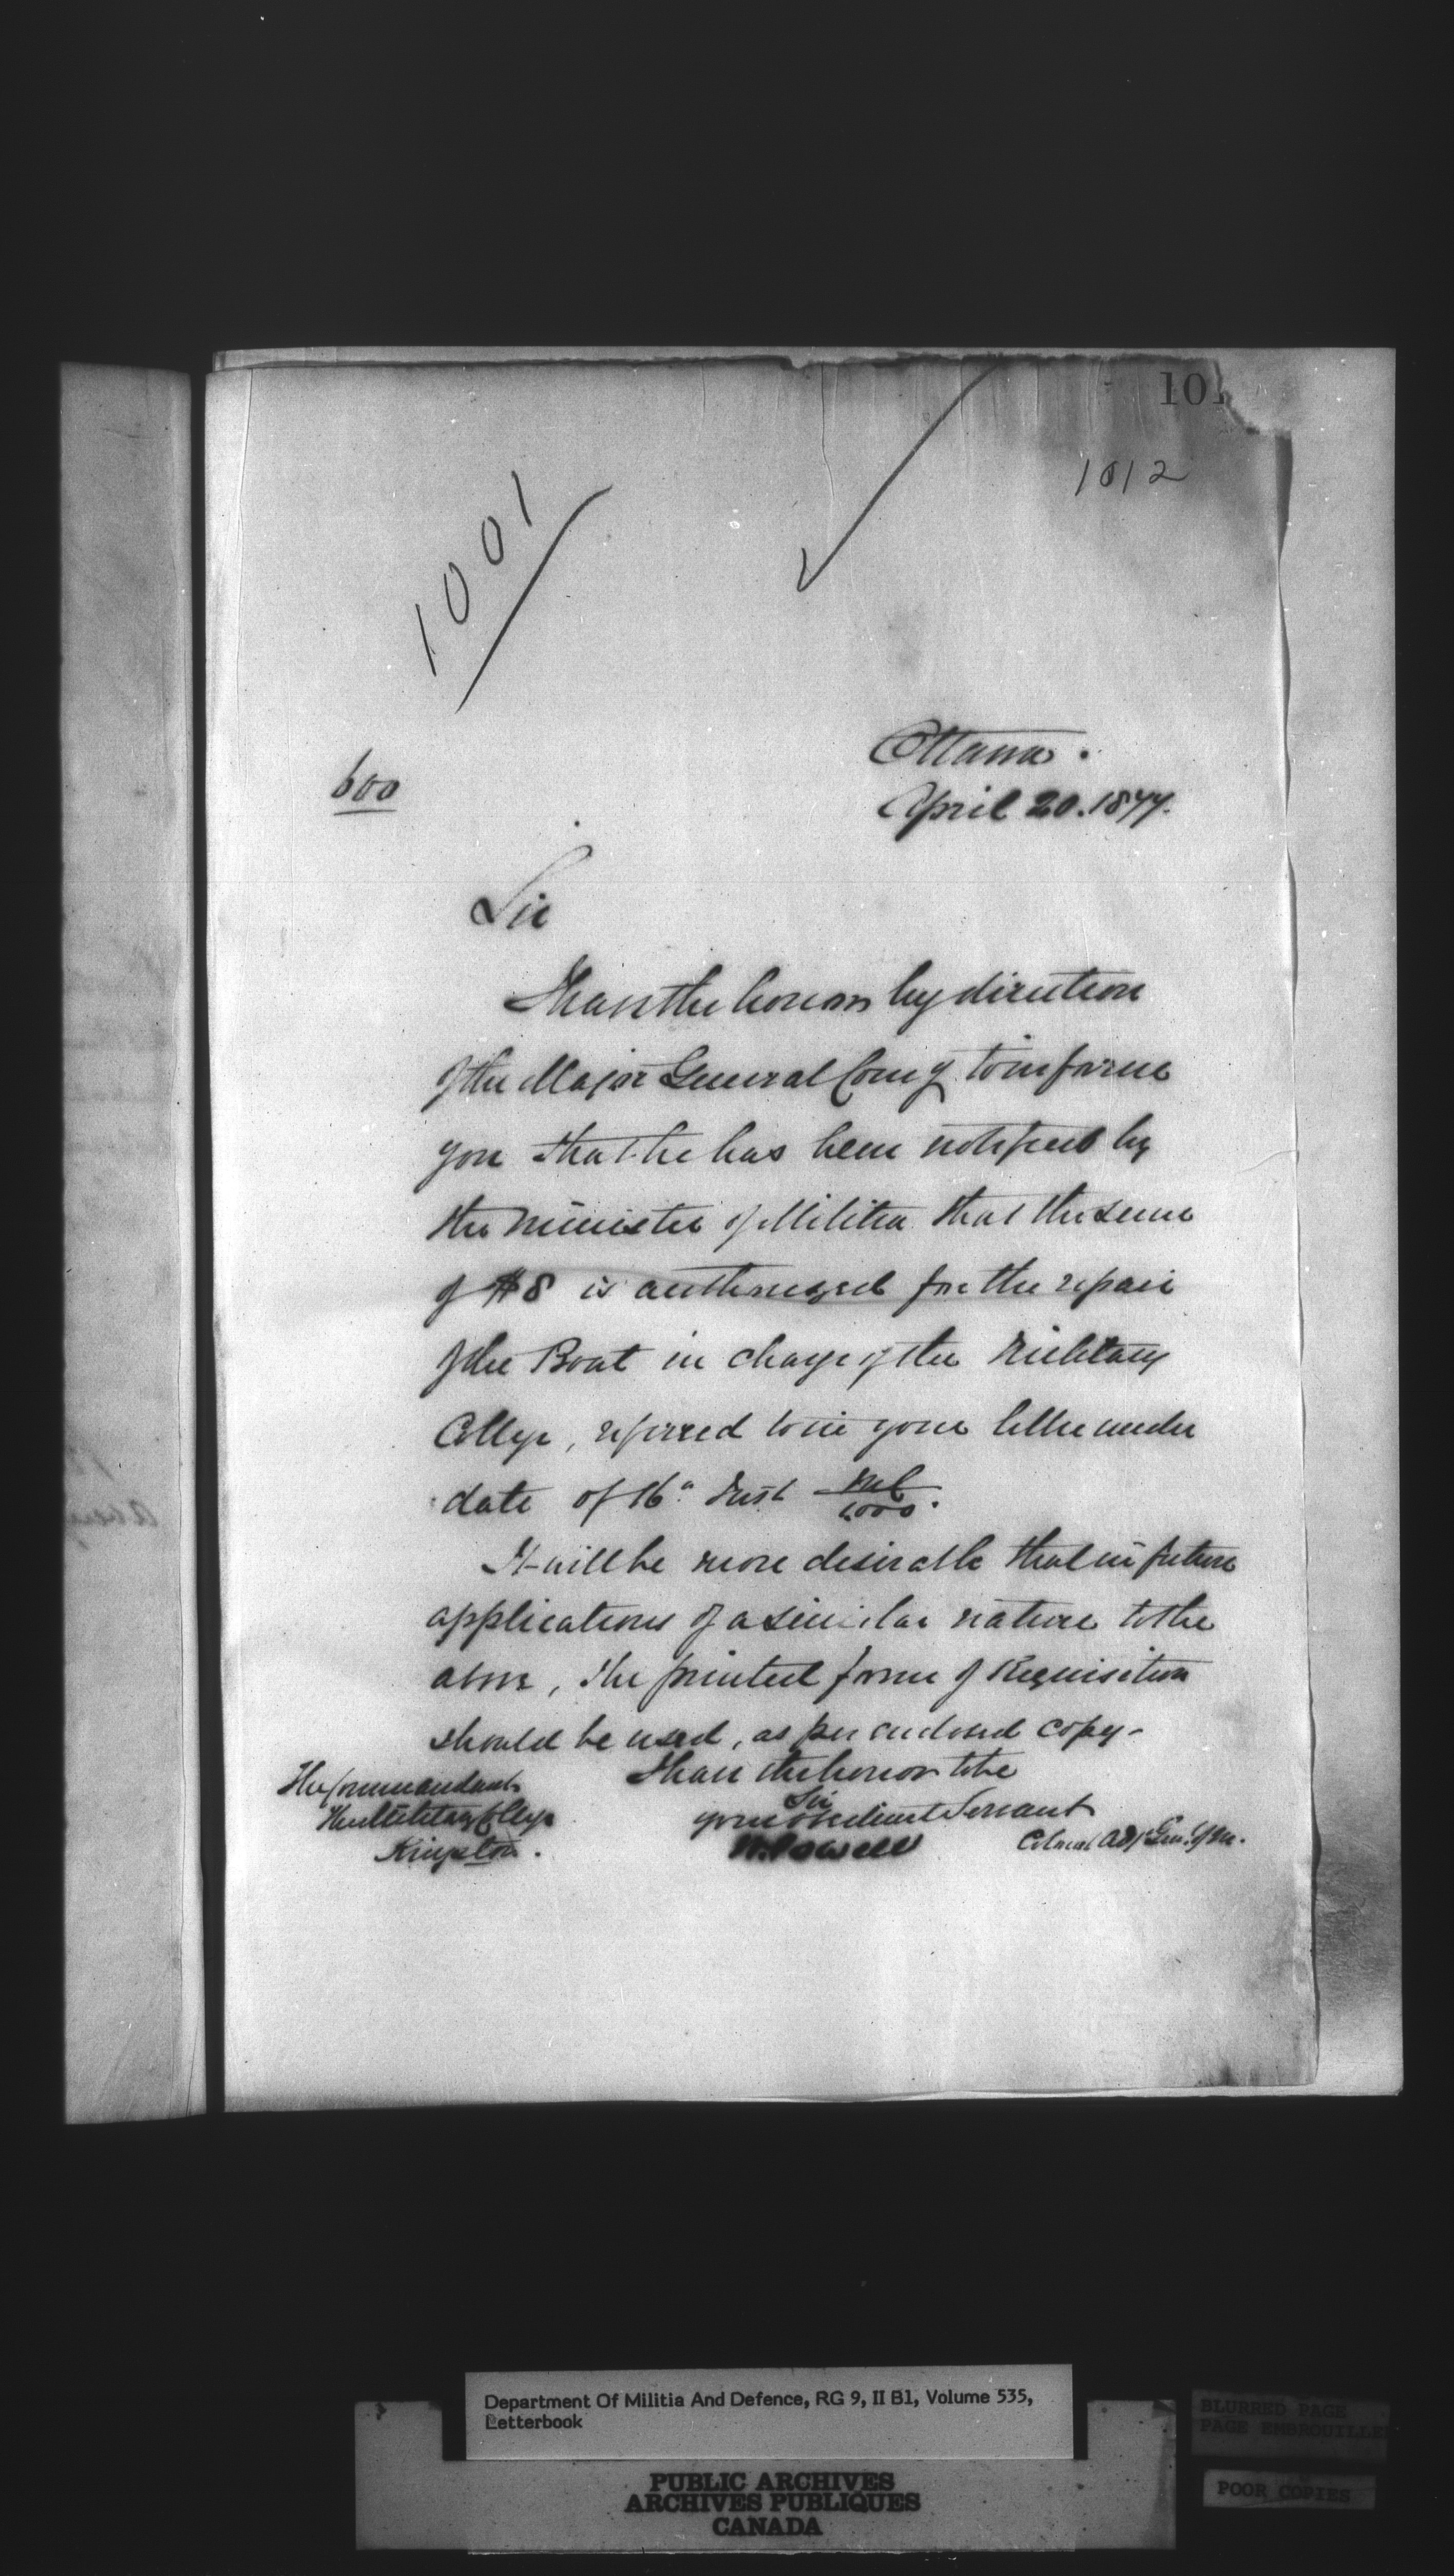 101
1012
1001
600
Ottawa.
April 20. 1877.
Sir
I have the honor by direction
of the Major General Comg to inform
you that he has been notified by
the Minister of Militia that the sum
of $8 is authorized for the repair
of the Boat in charge of the Military
College, referred to in your letter under
date of 16th Inst
1000.
It will be more desirable that in future
applications of a similar nature to the
above, the printed form of Requisition
should be used, as per enclosed copy-
I have the honor to be
Sir
your obedient Servant
W. Powell
Colonel Adjt. Genl. of M.
The Commandant
The Military College
Kingston.
Department Of Militia And Defence, RG 9, II B1, Volume 535,
Letterbook
BLURRED PAGE
PAGE EMBROUILLEE
POOR COPIES
PUBLIC ARCHIVES
ARCHIVES PUBLIQUES
CANADA